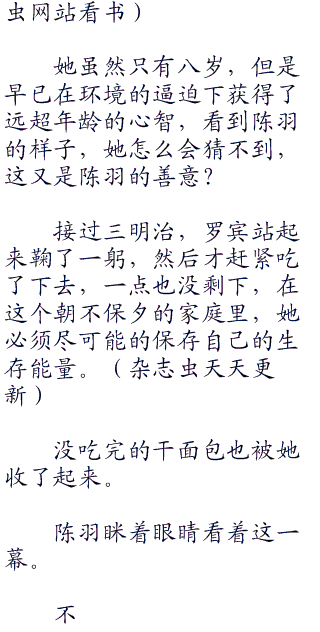 虫网站看书）
她虽然只有八岁，但是
早已在环境的逼迫下获得了
远超年龄的心智，看到陈羽
的样子，她怎么会猜不到，
这又是陈羽的善意？
接过三明治，罗宾站起
来鞠了一躬，然后才赶紧吃
了下去，一点也没剩下，在
这个朝不保夕的家庭里，她
必须尽可能的保存自己的生
存能量。（杂志虫天天更
新）
没吃完的干面包也被她
收了起来。
陈羽眯着眼睛看着这一
幕。
不